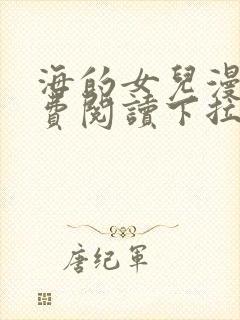 海的女兒漫
費閱讀下拉
唐纪軍